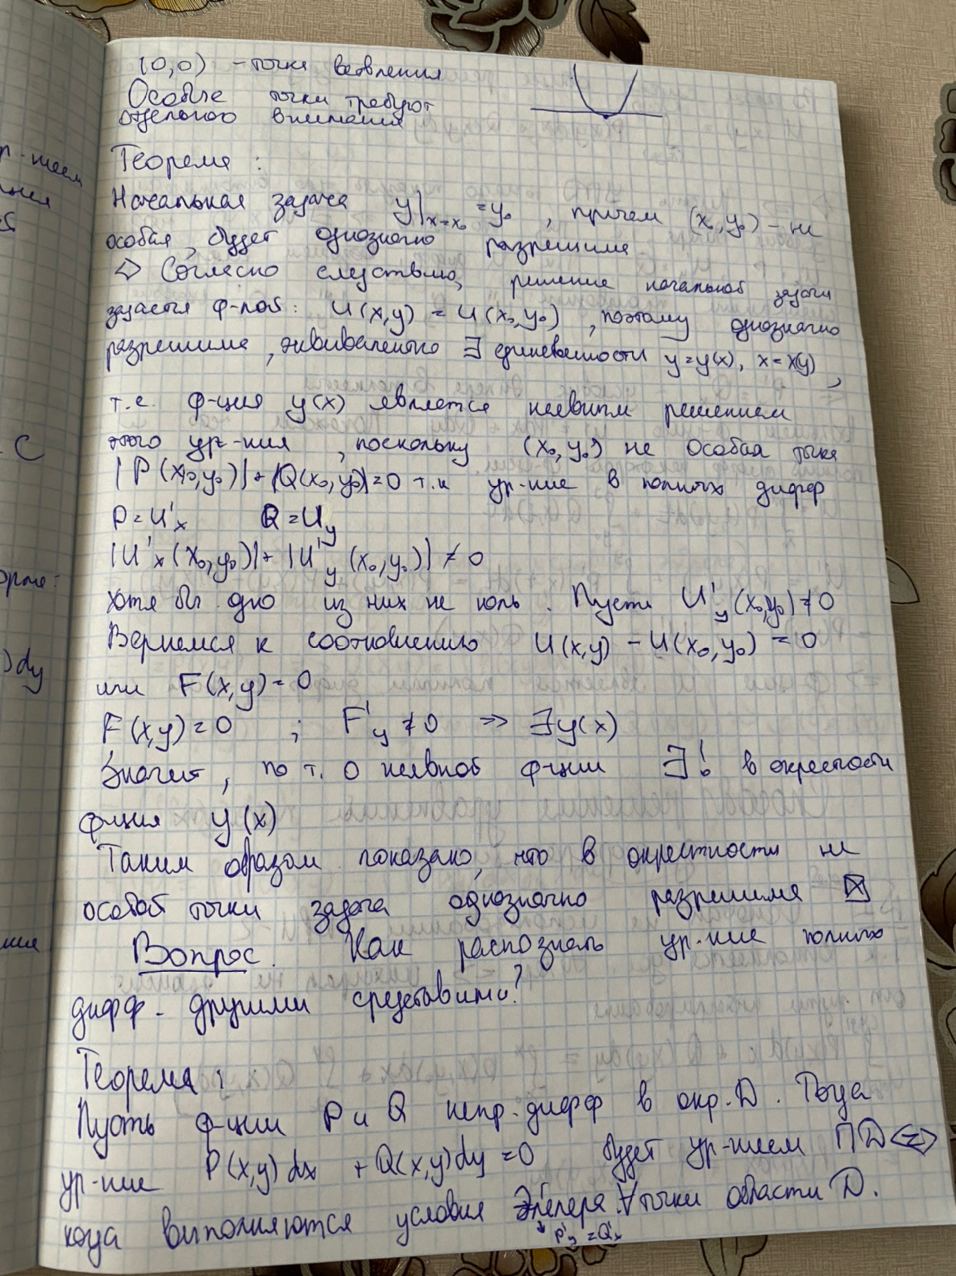 (0,0) - точки ветвления
Особые точки требуют
отдельного внимания
Теорема :
Начальная задача y|x=x₀ = y₀ , причем (x₀,y₀) - не
особая, будет однозначно разрешима
◁▷ Согласно следствию, решение начальной задачи
задается ф-лой: U(x,y) = U(x₀,y₀) , поэтому однозначно
разрешима, эквивалентно ∃ единственности y=y(x), x=x(y) ,
т.е. ф-ция y(x) является неявным решением
этого ур-ния , поскольку (x₀,y₀) не особая точка
|P(x₀,y₀)|+|Q(x₀,y₀)|=0 т.к ур-ние в полных дифер
P=U'x Q=U'y
|U'x(x₀,y₀)|+|U'y(x₀,y₀)| ≠ 0
Хотя бы одно из них не ноль . Пусть U'y(x₀,y₀)≠0
Вернемся к соотношению U(x,y) - U(x₀,y₀) = 0
или F(x,y)=0
F(x,y)=0 ; F'y ≠0 => ∃y(x)
Значит , по т. о неявной ф-ции ∃! в окрестности
ф-ция y(x)
Таким образом показано, что в окрестности не
особой точки задача однозначно разрешима ☒
Вопрос. Как распознать ур-ние полного
дифф- другими средставими?
Теорема :
Пусть ф-ции P и Q непр.дифф в окр. D . Тогда
ур-ние P(x,y)dx + Q(x,y)dy=0 будет ур-нием ПД <=>
когда выполняются условия Эйлера ∀ точки области D.
P'y = Q'x
ур-нием
C
)dy